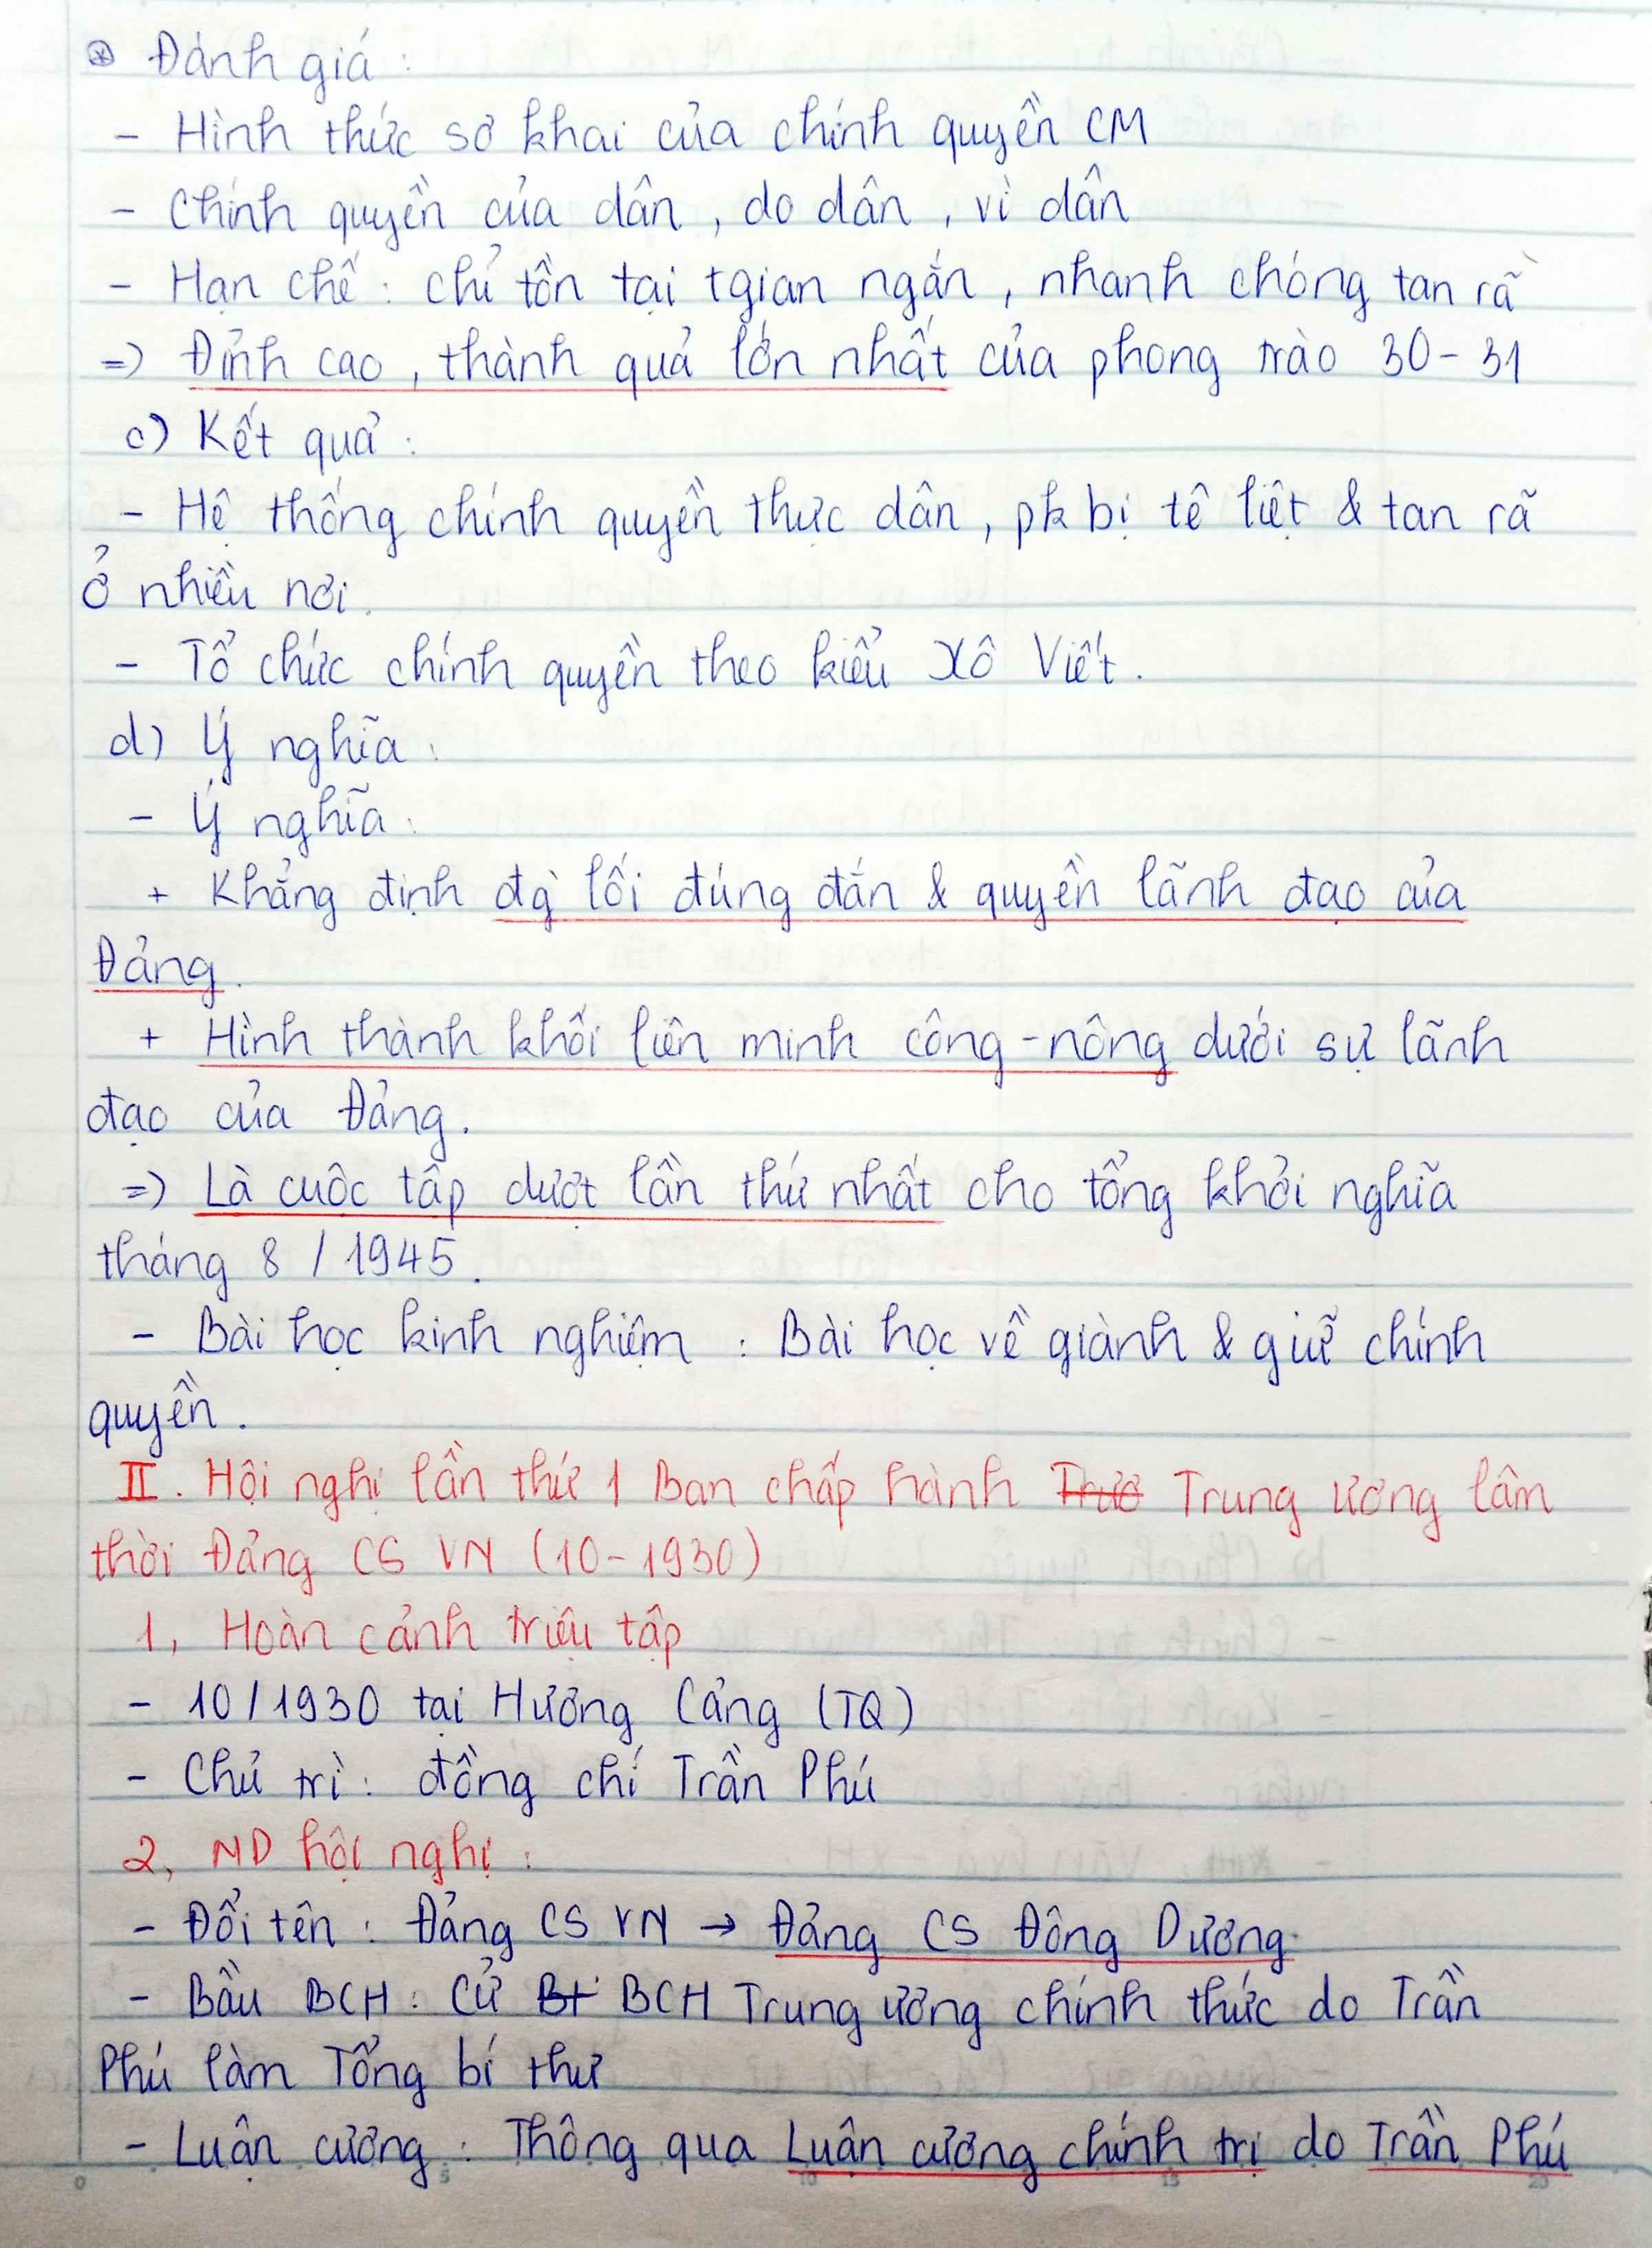 ⊛ Đánh giá :
- Hình thức sơ khai của chính quyền CM
- Chính quyền của dân , do dân , vì dân
- Hạn chế : chỉ tồn tại tgian ngắn , nhanh chóng tan rã
=) Đỉnh cao , thành quả lớn nhất của phong trào 30 - 31
c) Kết quả :
- Hệ thống chính quyền thực dân , pk bị tê liệt & tan rã
ở nhiều nơi .
- Tổ chức chính quyền theo kiểu Xô Viết .
d) Ý nghĩa :
- Ý nghĩa :
+ Khẳng định đg̀ lối đúng đắn & quyền lãnh đạo của
Đảng .
+ Hình thành khối liên minh công - nông dưới sự lãnh
đạo của Đảng .
=) Là cuộc tập dượt lần thứ nhất cho tổng khởi nghĩa
tháng 8 / 1945 .
- Bài học kinh nghiệm : Bài học về giành & giữ chính
quyền .
II . Hội nghị lần thứ 1 Ban chấp hành Trung ương lâm
thời Đảng CS VN (10 - 1930)
1, Hoàn cảnh triệu tập
- 10 / 1930 tại Hương Cảng (TQ)
- Chủ trì : đồng chí Trần Phú
2, ND hội nghị :
- Đổi tên : Đảng CS VN → Đảng CS Đông Dương
- Bầu BCH : Cử BCH Trung ương chính thức do Trần
Phú làm Tổng bí thư
- Luận cương : Thông qua Luận cương chính trị do Trần Phú
0 5 10 15 20